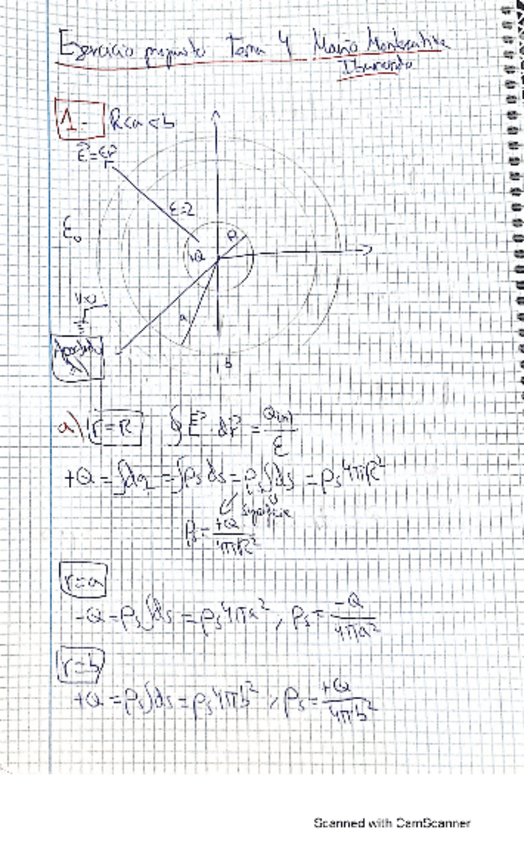 Ejercicio propuesto Tema 4 María
1- R<a<b
E⃗=εP⃗
ε=2
ε₀
R
+Q
V=0
a
b
a) r=R ∮E⃗·dr⃗=Q(in)/ε
+Q=∫dq=∫ρₛds=ρₛ∫ds=ρₛ4πR²
superficie
ρₛ=+Q/4πR²
r=a
-Q=ρₛ∫ds=ρₛ4πa², ρₛ=-Q/4πa²
r=b
+Q=ρₛ∫ds=ρₛ4πb², ρₛ=+Q/4πb²
Scanned with CamScanner